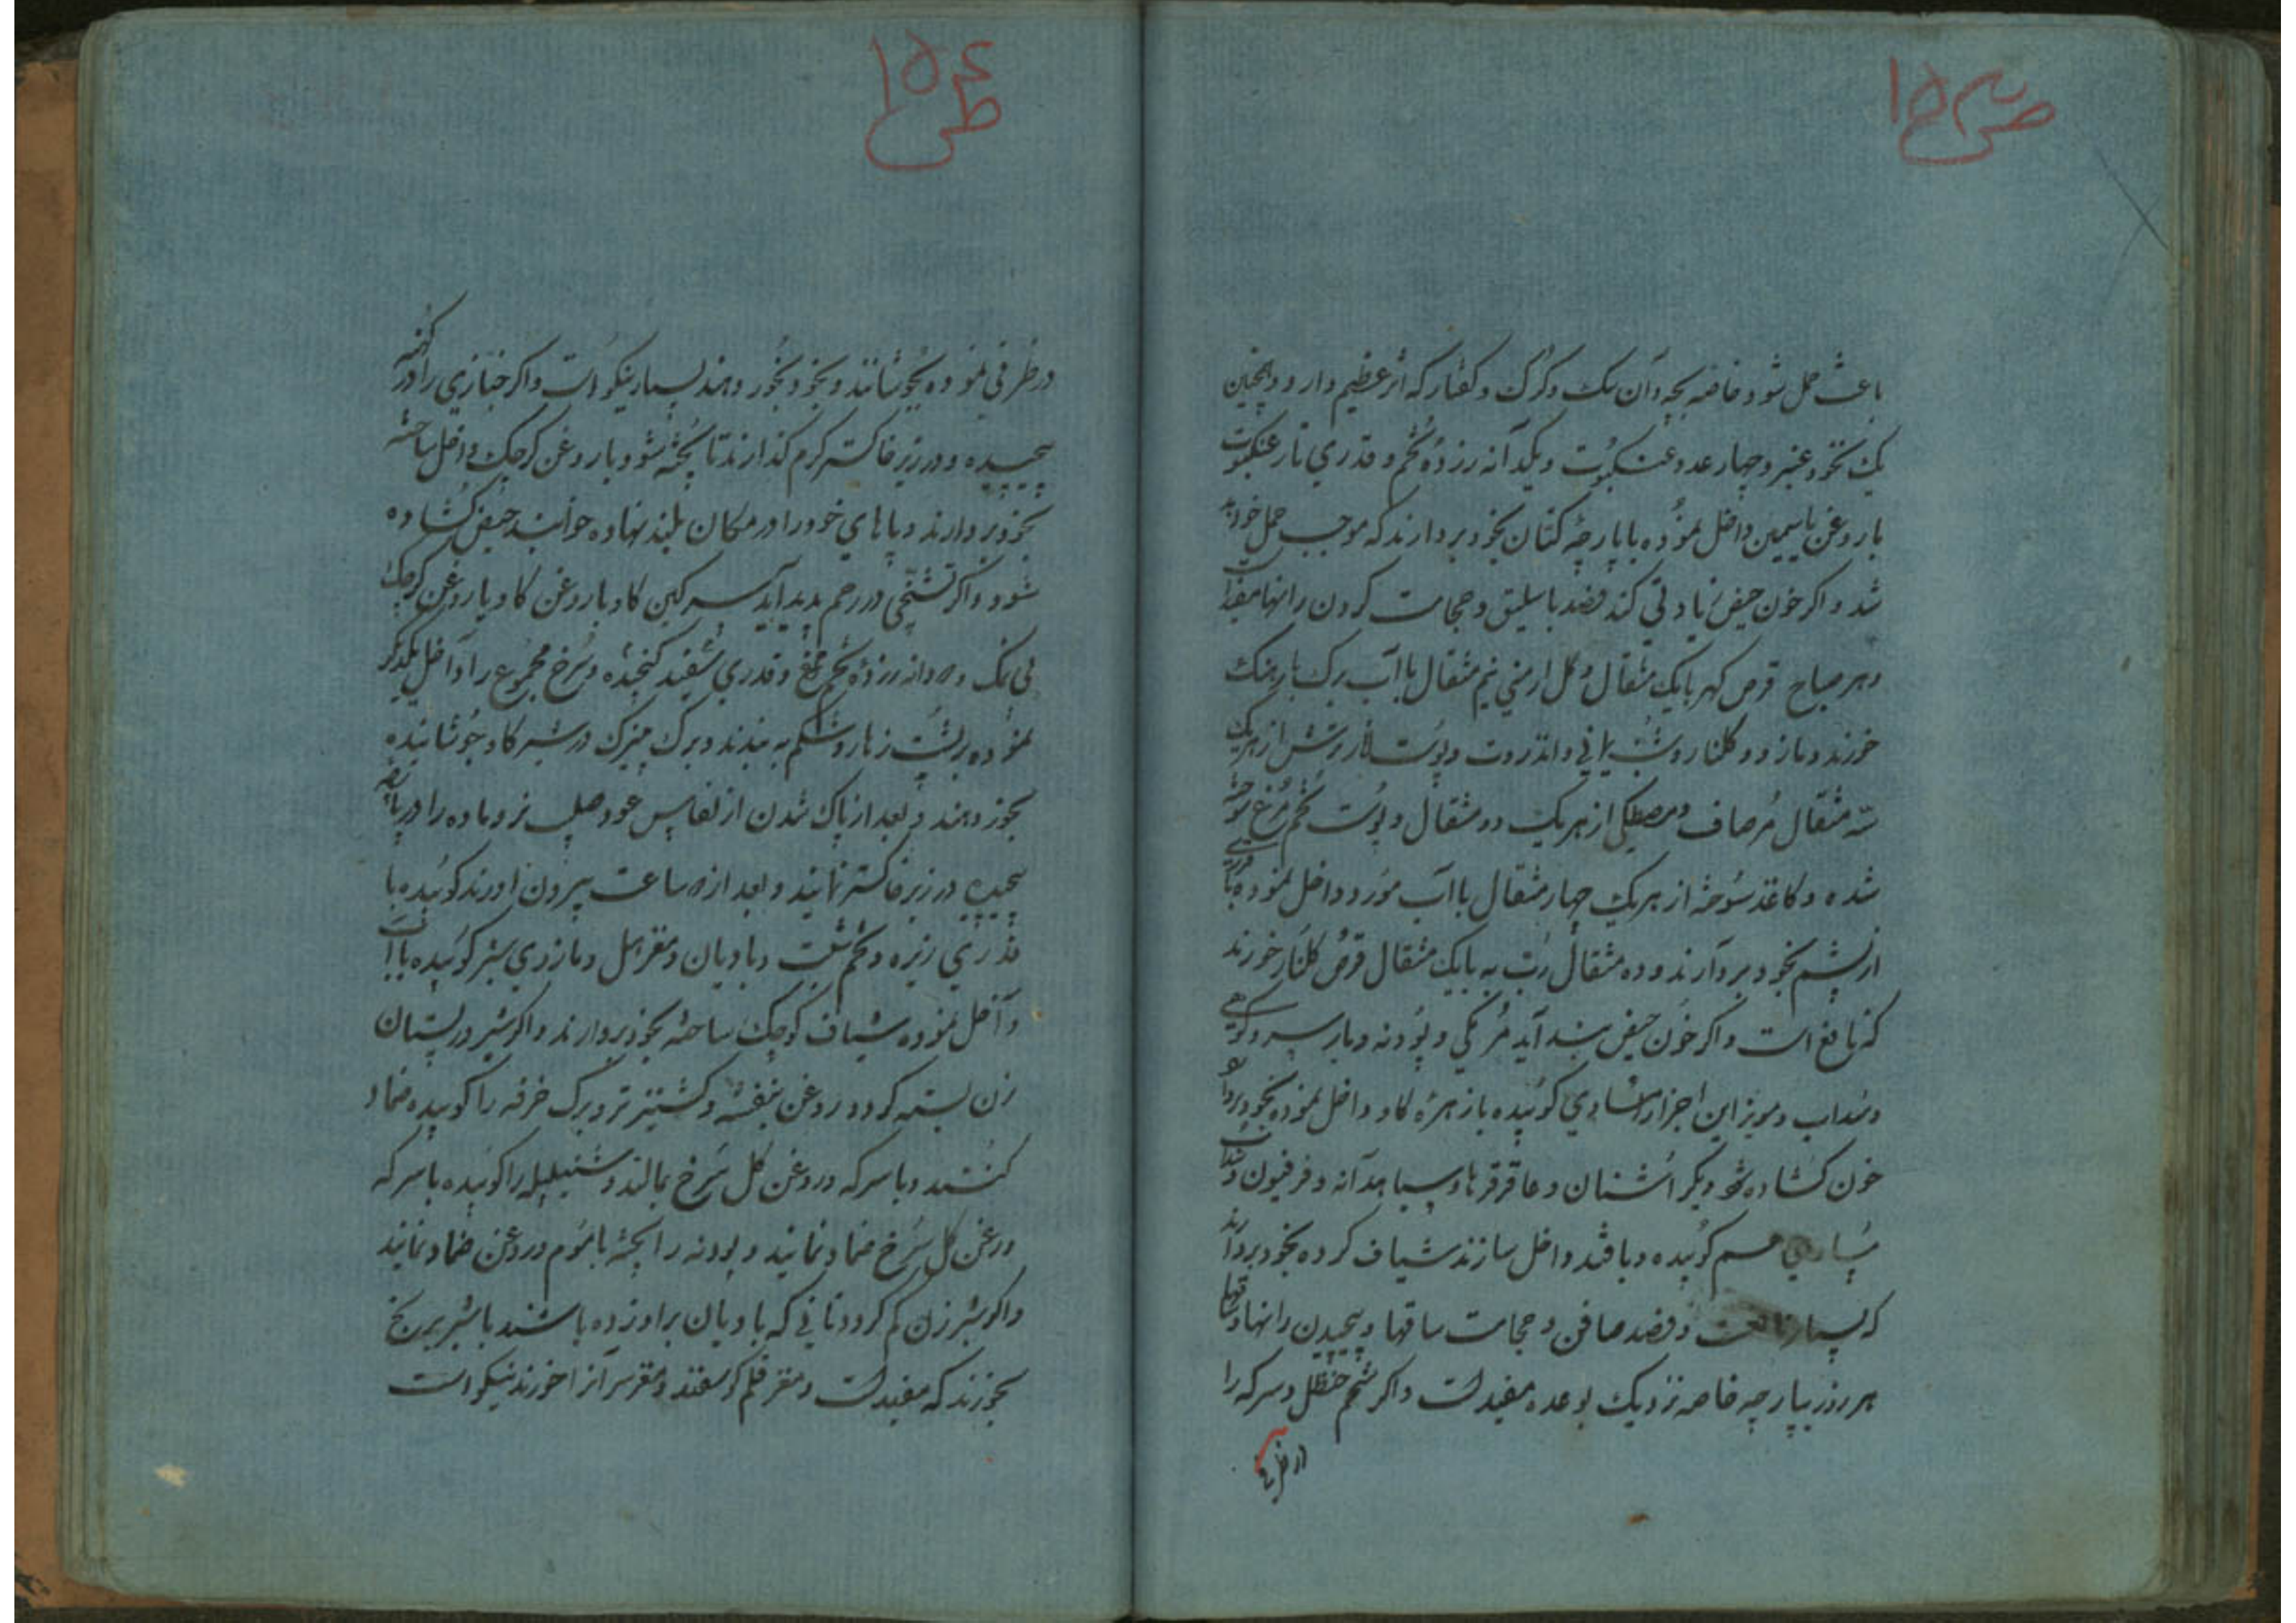 ص ۱۵۳
باعث حمل شود خاصه بچه دان سک و کرک و کفتار که اثر عظیم دارد و همچنین
یک نخود عنبر و چهار عدد عنکبوت و یکدانه زرده تخم و قدری تار عنکبوت
با روغن یاسمین داخل نموده با پارچه کتان بخود بردارند که موجب حمل خواهد
شد و اکر خون حیض زیادتی کند فصد باسلیق و حجامت کردن رانها مفید است
و هر صباح قرص کهربا یک مثقال و کل ارمنی نیم مثقال با آب برک بارهنک
خورند و مازو و کلنار و شب یمانی و انذروت و پوست انار ترش از هریک
سه مثقال مرصاف و مصطکی از هریک دو مثقال و پوست تخم مرغ سوخته
شده و کاغذ سوخته از هریک چهار مثقال با آب مورد داخل نموده با
از پشم بخود بردارند و ده مثقال رب به با یک مثقال قرص کلنار خورند
که نافع است و اکر خون حیض بند آید مر مکی و پودنه و
و سداب و مویز این اجزا را مساوی کوبیده با زهره کاو داخل نموده بخود بردارند
خون کشاده شود دیکر اشنان و عاقرقرها و سیاهدانه و فرفیون و سداب
مساوی هم کوبیده و با قند داخل سازند شیاف کرده بخود بردارند
که بسیار نافعست و فصد صافن و حجامت ساقها و پیچیدن رانها و ساقها
هر روز بپارچه خاصه نزدیک بوعده مفیدست و اکر شحم حنظل و سرکه را
در ظرفی
ص ۱۵۴
در ظرفی نموده بجوشانند و بخود بخور دهند بسیار نیکو است و اکر خبازی را در کهنه
پیچیده و در زیر خاکستر کرم کذارند تا پخته شود و با روغن کرچک داخل ساخته
بخود بردارند و پاهای خود را در مکان بلند نهاده خوابند حیض کشاده
شود و اکر تشنجی در رحم پدید آید سرکین کاو با روغن کاو یا روغن کرچک
بی نمک و ده دانه زرده تخم مرغ و قدری سفید کنجده و سرخ مجموع را داخل یکدیکر
نموده بر پشت زهار و شکم به بندند و برک چنرک در شیر کاو جوشانیده
بخورد دهند و بعد از پاک شدن از نفاس عود صلیب نر و ماده را در پارچه
پیچیده در زیر خاکستر نمایند و بعد از ده ساعت بیرون اورند کوبیده با
قدری زیره و تخم شبت و بادیان و مقر اسل و مازوی سبز کوبیده با آب
داخل نموده شیاف کوچک ساخته بخود بردارند و اکر شیر در پستان
زن بسته کردد روغن بنفشه و کشنیز تر و برک خرفه را کوبیده ضماد
کنند و با سرکه و روغن کل سرخ بمالند و شنبلیله را کوبیده با سرکه
و روغن کل سرخ ضماد نمایند و پودنه را پخته با موم و روغن ضماد نمایند
و اکر شیر زن کم کردد نانی که بادیان بر او زده باشند با شیر برنج
بخورند که مفیدست و مغز قلم کوسفند و مغز سر آنرا خورند نیکو است